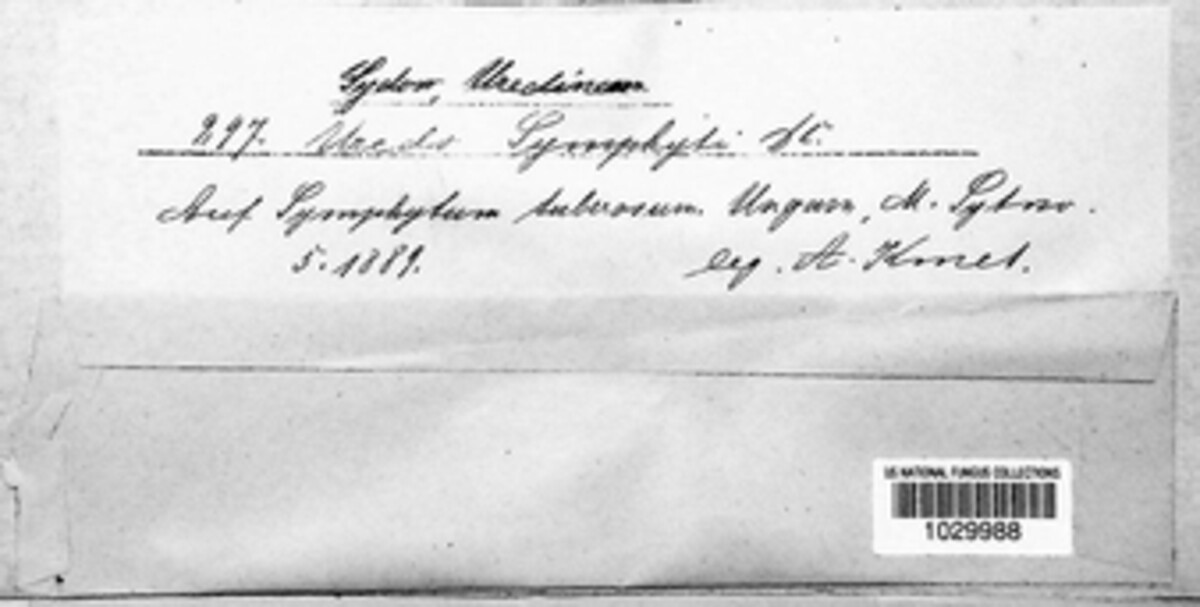 Sydow, Uredineen
297. Uredo Symphyti DC.
Auf Symphytum tuberosum. Ungarn, M. Sytno.
5. 1889. leg. A. Kmet.
US NATIONAL FUNGUS COLLECTIONS
1029988